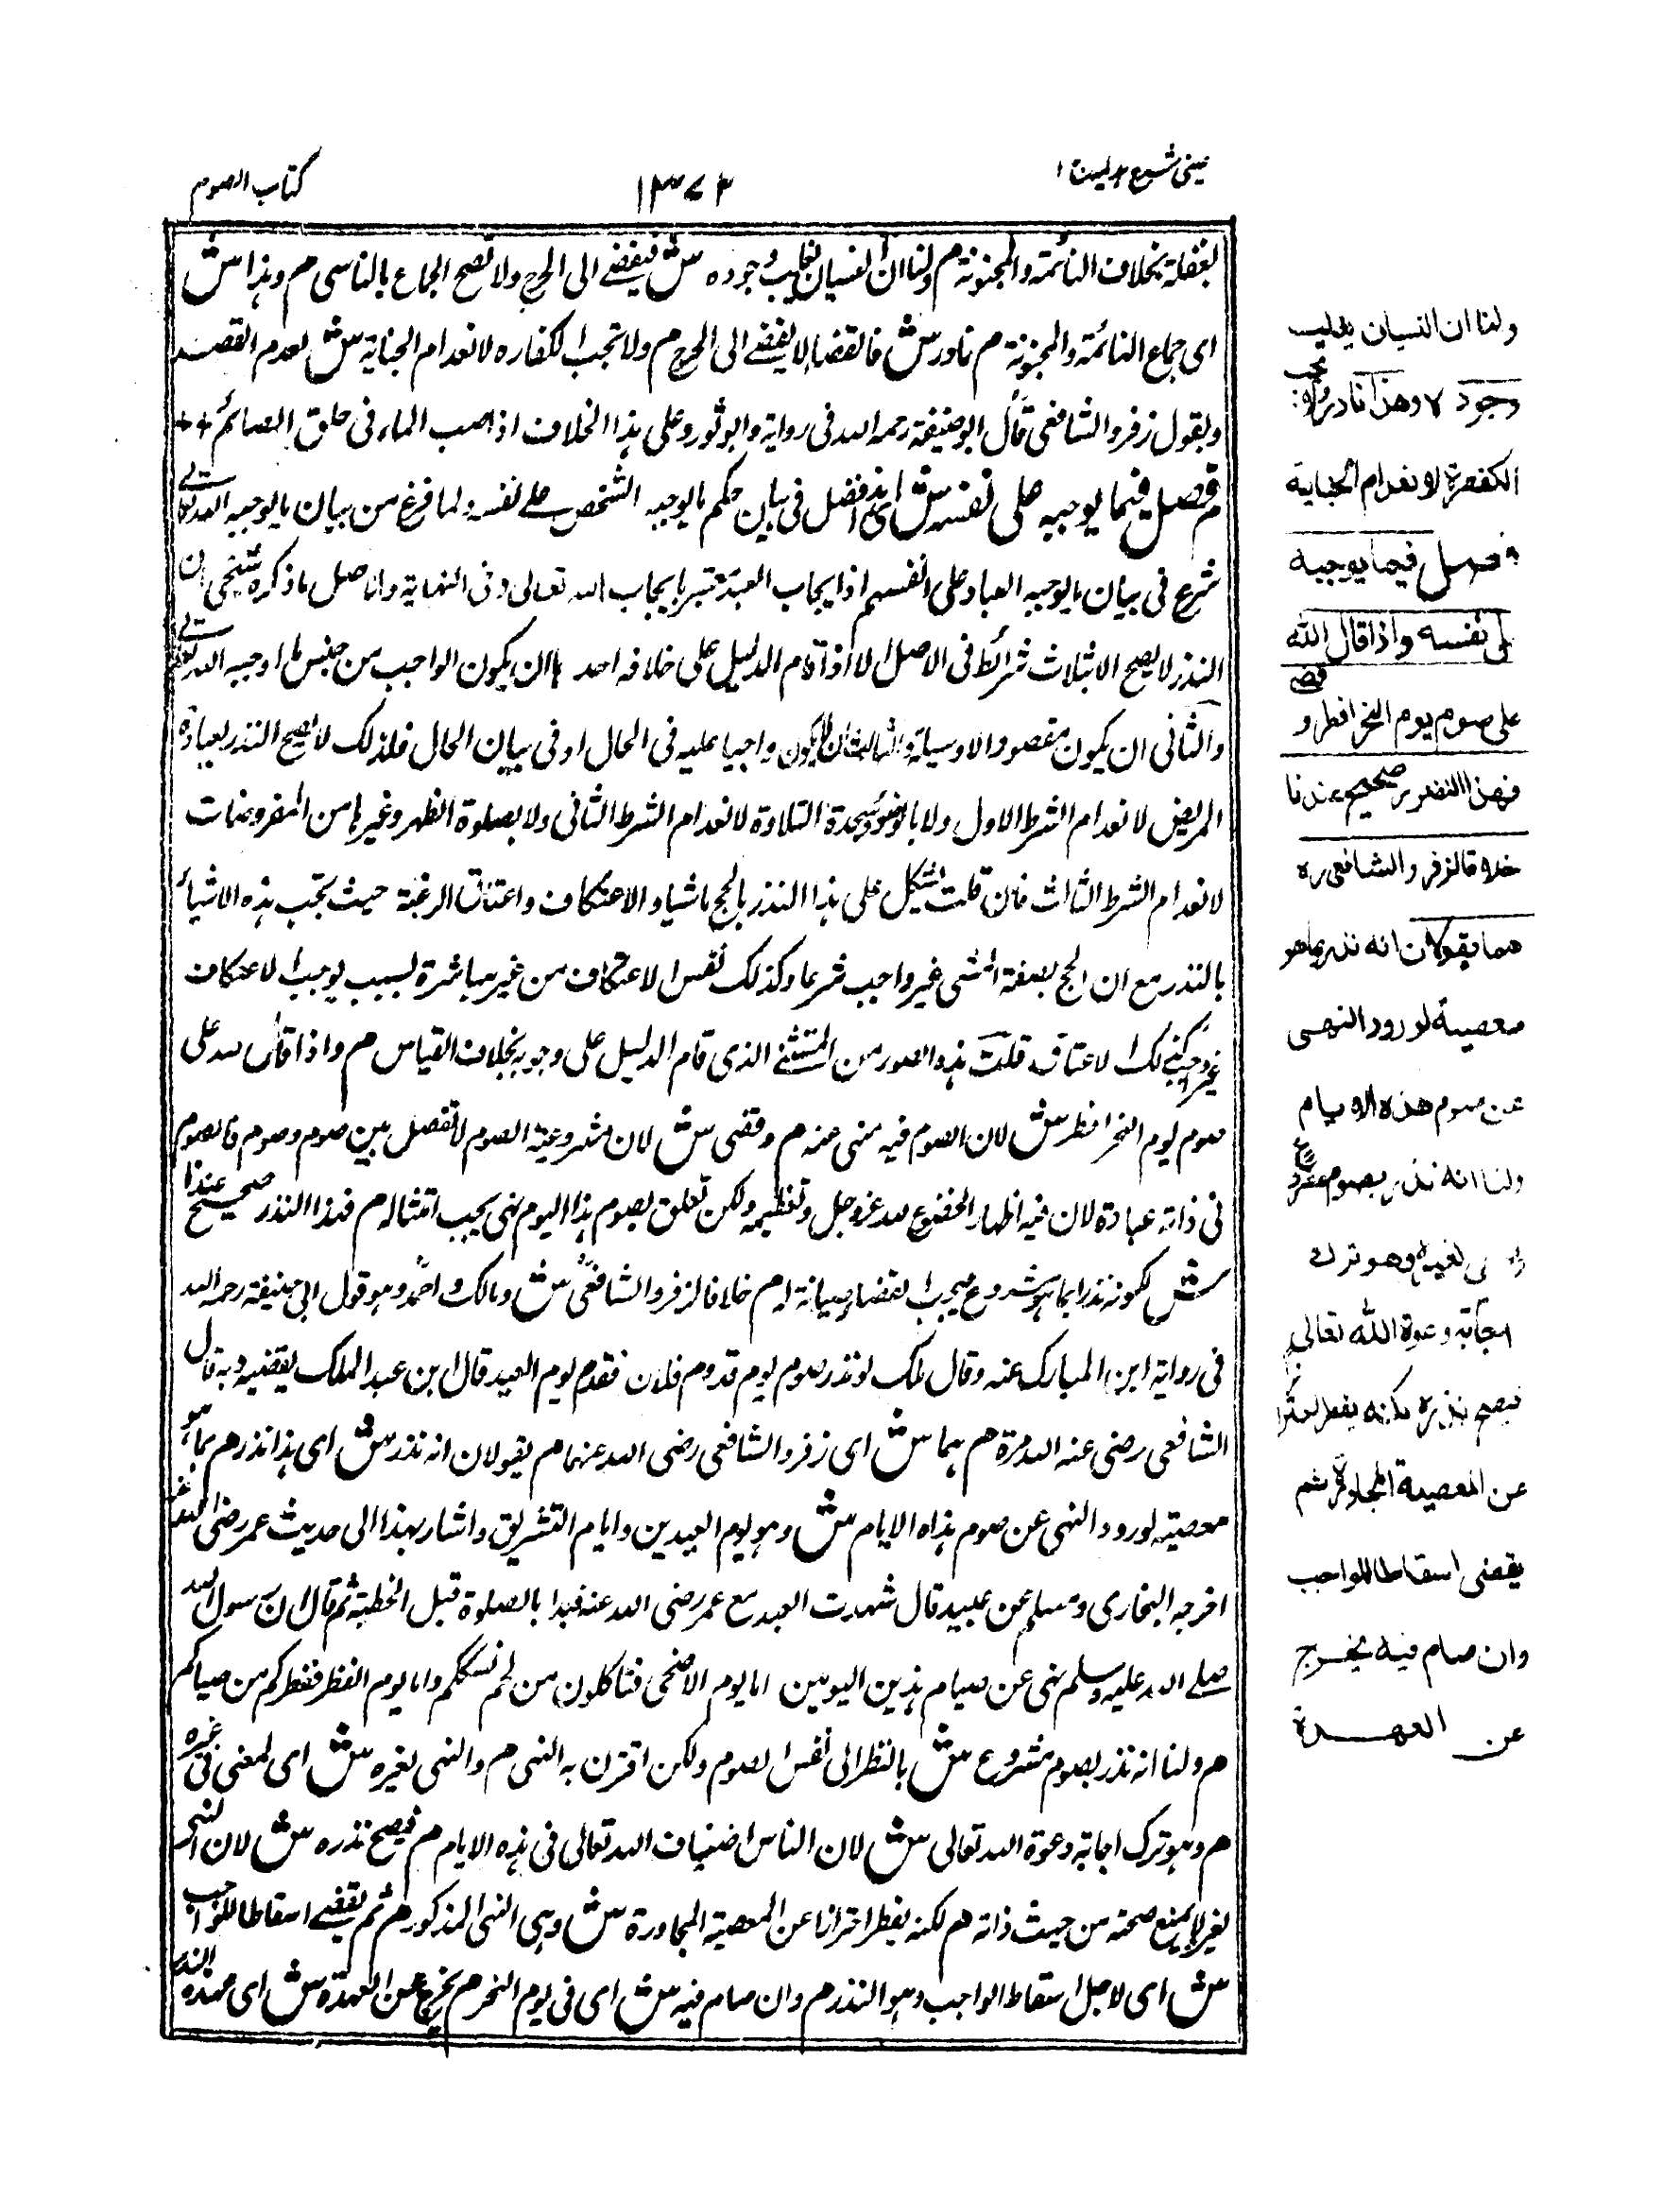 عینی شرح هدایة ١
١٣٧٢
كتاب الصوم
لغفلة بخلاف النائمة والمجنونة م ولنا ان النسيان يغلب وجوده ش فيفضى الى الحرج ولا تصح الجماع بالناسى م وهذا ش
اى جماع النائمة والمجنونة م نادر ش فالقضاء لا يفضى الى الحرج م ولا تجب الكفاره لانعدام الجناية ش لعدم القصد
وبقول زفر والشافعى قال ابو حنيفة رحمه الله فى رواية وابو ثور وعلى هذا الخلاف اذا صب الماء فى حلق الصائم
م فصل فيما يوجبه على نفسه ش اى هذا فصل فى بيان حكم ما يوجبه الشخص على نفسه ولما فرغ من بيان ما يوجبه الله تعالى
شرع فى بيان ما يوجبه العباد على انفسهم اذ ايجاب العبد معتبر بايجاب الله تعالى وفى النهاية وانا اصل ما ذكره شيخى ان
النذر لا يصح الا بثلاث شرائط فى الاصل الا اذا قام الدليل على خلافه احدها ان يكون الواجب من جنس ما اوجبه الله تعالى
والثانى ان يكون مقصودا لا وسيلة والثالث ان لا يكون واجبا عليه فى الحال او فى بيان الحال فلذلك لا يصح النذر بعيادة
المريض لانعدام الشرط الاول ولا بالوضوء وسجدة التلاوة لانعدام الشرط الثانى ولا بصلوة الظهر وغيرها من المفروضات
لانعدام الشرط الثالث فان قلت اشكل على هذا النذر بالحج ماشيا والاعتكاف واعتاق الرقبة حيث تجب هذه الاشياء
بالنذر مع ان الحج بصفة المشى غير واجب شرعا وكذلك نفس الاعتكاف من غير مباشرة لسبب يوجب الاعتكاف
غير واجب وكذلك الاعتاق قلت هذه الصور من المستثنى الذى قام الدليل على وجوبه بخلاف القياس م واذا قال لله على
صوم يوم النحر افطر ش لان الصوم فيه منهى عنه م وقضى ش لان مشروعية الصوم لا تفصل بين صوم وصوم فالصوم
فى ذاته عبادة لان فيه اظهار الخضوع لله عز وجل وتعظيمه ولكن تعلق بصوم هذا اليوم نهى يجب امتثاله م فهذا النذر صحيح عندنا
ش لكونه نذرا بما هو مشروع فيجب القضاء صيانة له م خلافا لزفر والشافعى ش ومالك واحمد وهو قول ابى حنيفة رحمه الله
فى رواية ابن المبارك عنه وقال ملك لو نذر صوم يوم قدوم فلان فقدم يوم العيد قال ابن عبد الملك يقضيه وبه قال
الشافعى رضى عنه الله مرة م هما ش اى زفر والشافعى رضى الله عنهما م يقولان انه نذر ش اى هذا نذر م بما هو
معصية لورود النهى عن صوم هذه الايام ش وهو يوم العيدين وايام التشريق واشار بهذا الى حديث عمر رضى الله عنه
اخرجه البخارى ومسلم عن عبيد قال شهدت العيد مع عمر رضى الله عنه فبدا بالصلوة قبل الخطبة ثم قال ان رسول الله
صلى الله عليه وسلم نهى عن صيام هذين اليومين اما يوم الاضحى فتاكلون من لحم نسككم واما يوم الفطر ففطركم من صيامكم
م ولنا انه نذر بصوم مشروع ش بالنظر الى نفس الصوم ولكن اقترن به النهى م والنهى لغيره ش اى لمعنى فى غيره
م وهو ترك اجابة دعوة الله تعالى ش لان الناس اضياف الله تعالى فى هذه الايام م فيصح نذره ش لان النهى
لغيره لا يمنع صحته من حيث ذاته م لكنه يفطر احترازا عن المعصية المجاورة ش وهى النهى المذكور م ثم يقضى اسقاطا للواجب
ش اى لاجل اسقاط الواجب وهو النذر م وان صام فيه ش اى فى يوم النحر م يخرج عن العهدة ش اى عهدة النذر
ولنا ان النسيان يغلب
وجوده وهذا نادر ولا تجب
الكفارة لانعدام الجناية
فصل فيما يوجبه
على نفسه واذا قال لله
على صوم يوم النحر افطر و قضى
فهذا النذر صحيح عندنا
خلافا لزفر والشافعى ره
هما يقولان انه نذر بما هو
معصية لورود النهى
عن صوم هذه الايام
ولنا انه نذر بصوم مشروع
لغيره وهو ترك
اجابة دعوة الله تعالى
فيصح نذره لكنه يفطر احترازا
عن المعصية المجاورة ثم
يقضى اسقاطا للواجب
وان صام فيه يخرج
عن العهدة